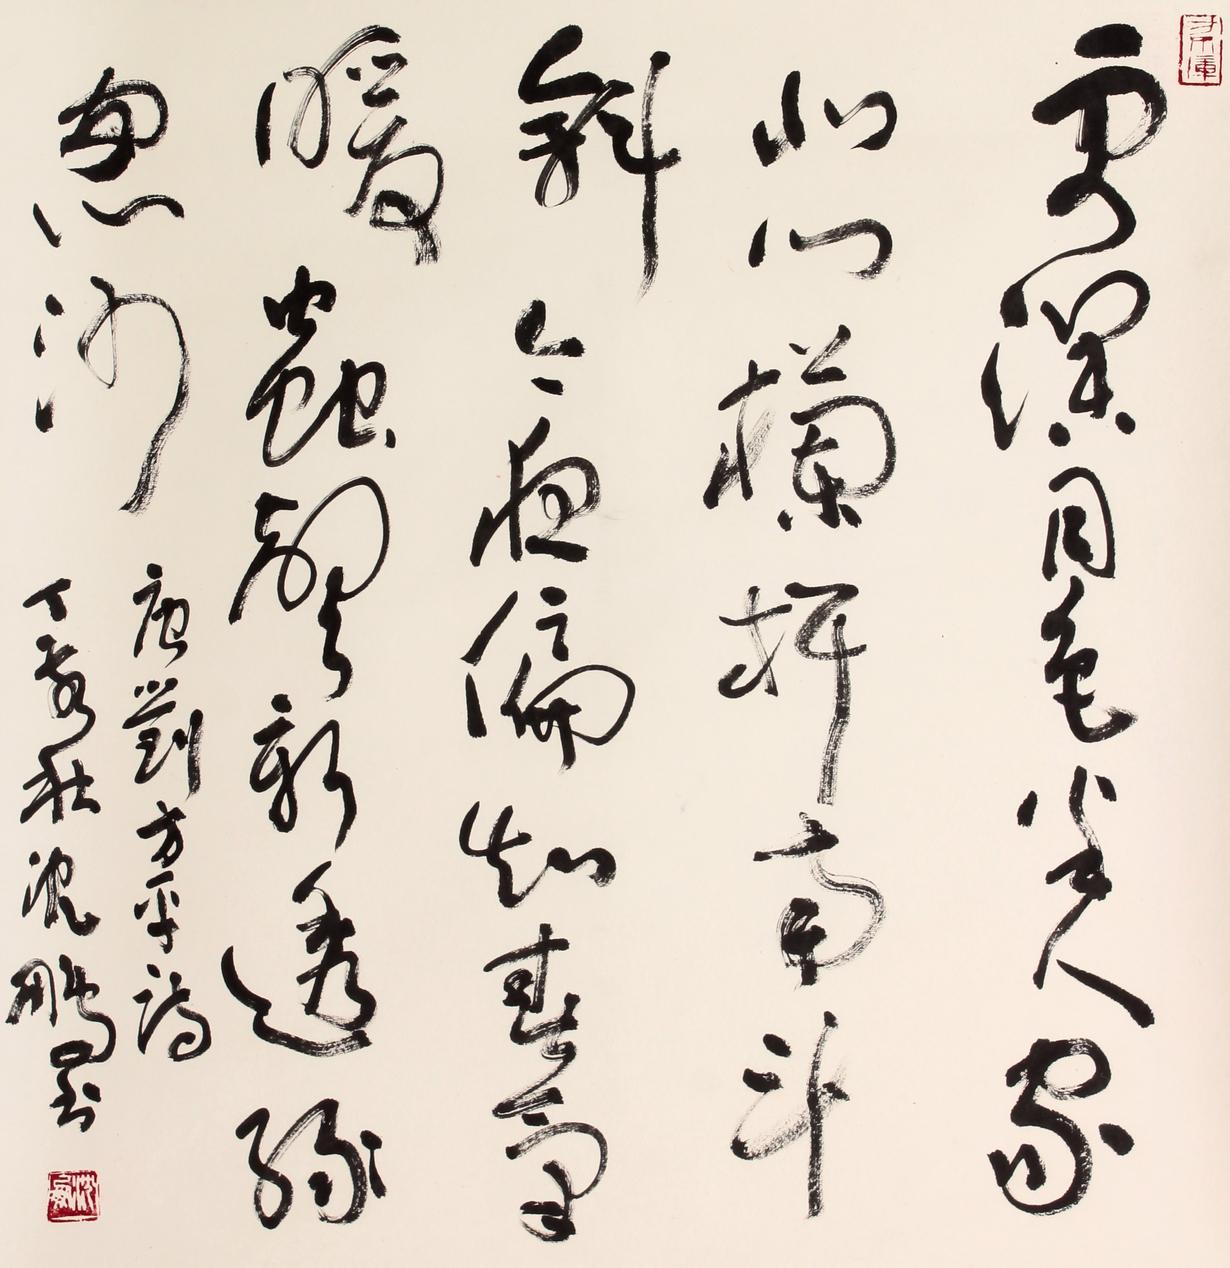 更深月色半人家
北斗闌挿南斗
斜今夜偏知春氣
暖蟲聲新透綠
窗沙
唐劉方平詩
丁亥秋沈鵬書
沈鵬